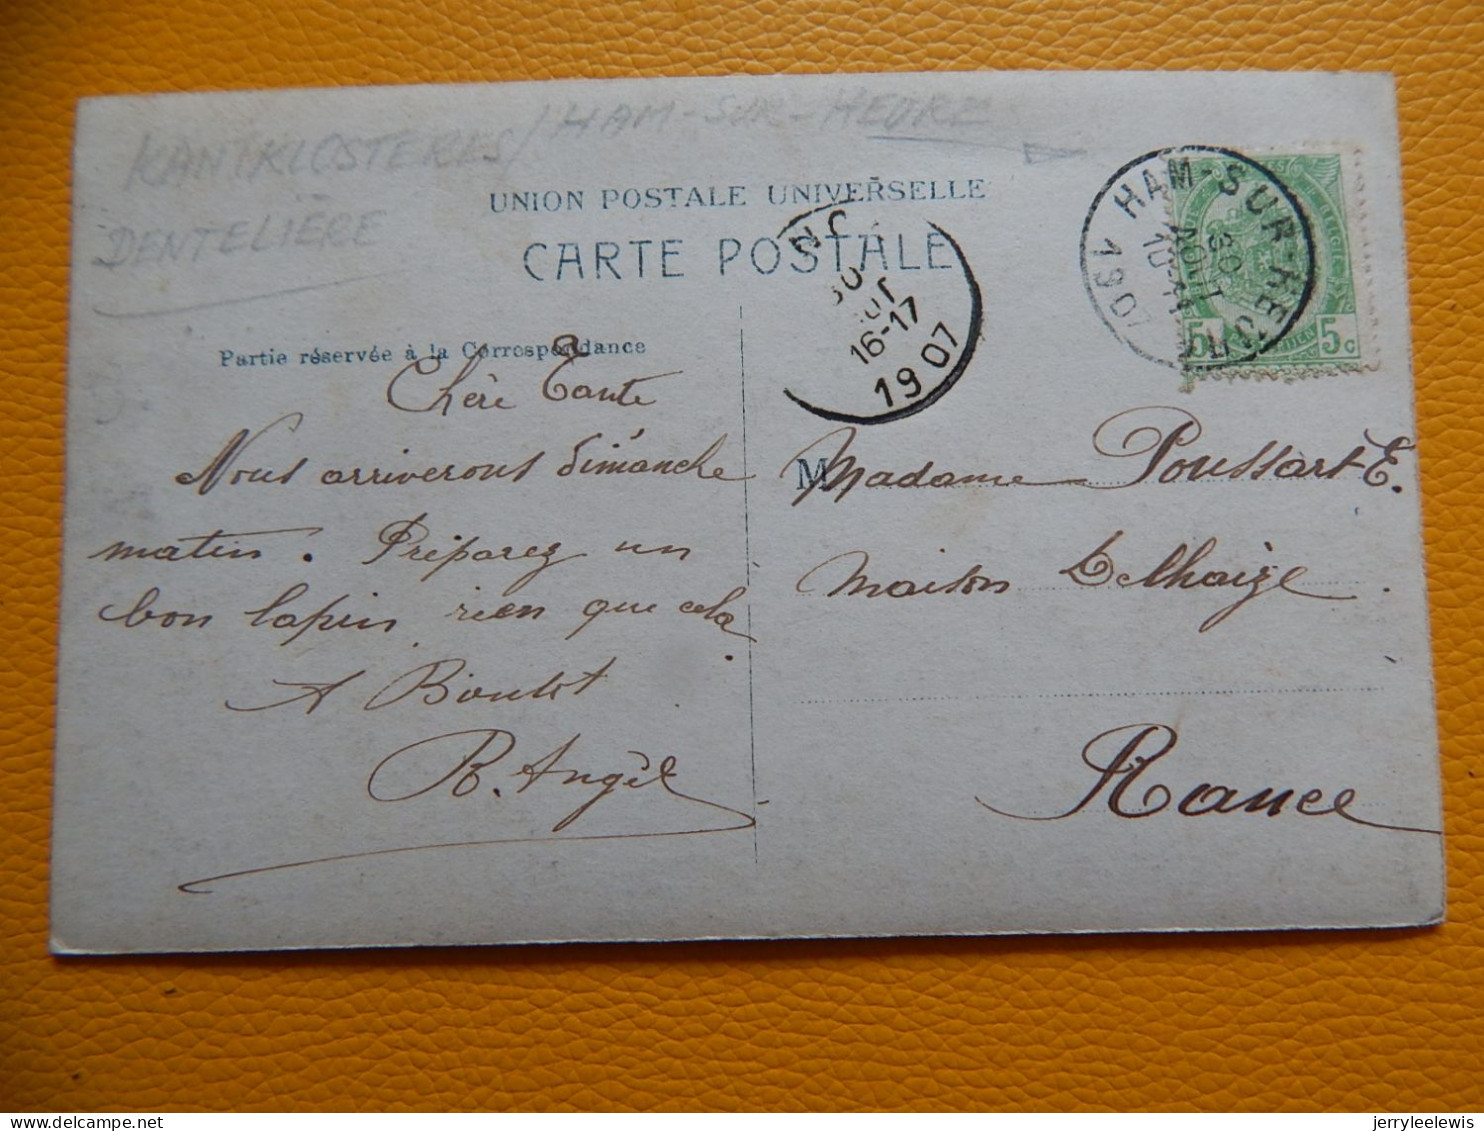 KANTKLOSTERES / HAM-SUR-HEURE
DENTELIÈRE
UNION POSTALE UNIVERSELLE
CARTE POSTALE
HAM-SUR-HEURE
10-11
30
AOUT
1907
BELGIQUE
5c 5c
16-17
1907
Partie réservée à la Correspondance
Chère Tante
Nous arriverons dimanche
matin. Préparez un
bon lapin, rien que cela.
R. Angèle
M
Madame Poussart-E.
maison Delhaize.
Rance
jerryleelewis